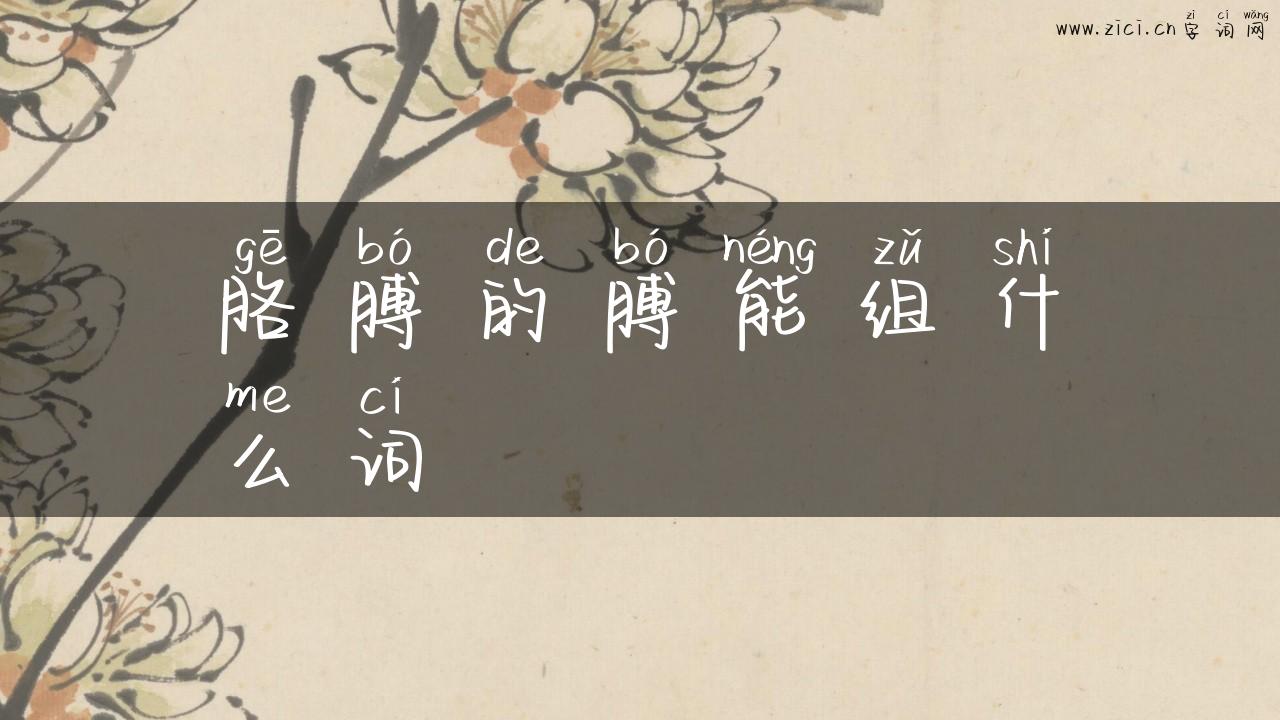 zì cí wǎng
www.zici.cn 字词网
gē bó de bó néng zǔ shí
胳膊的膊能组什
me cí
么词